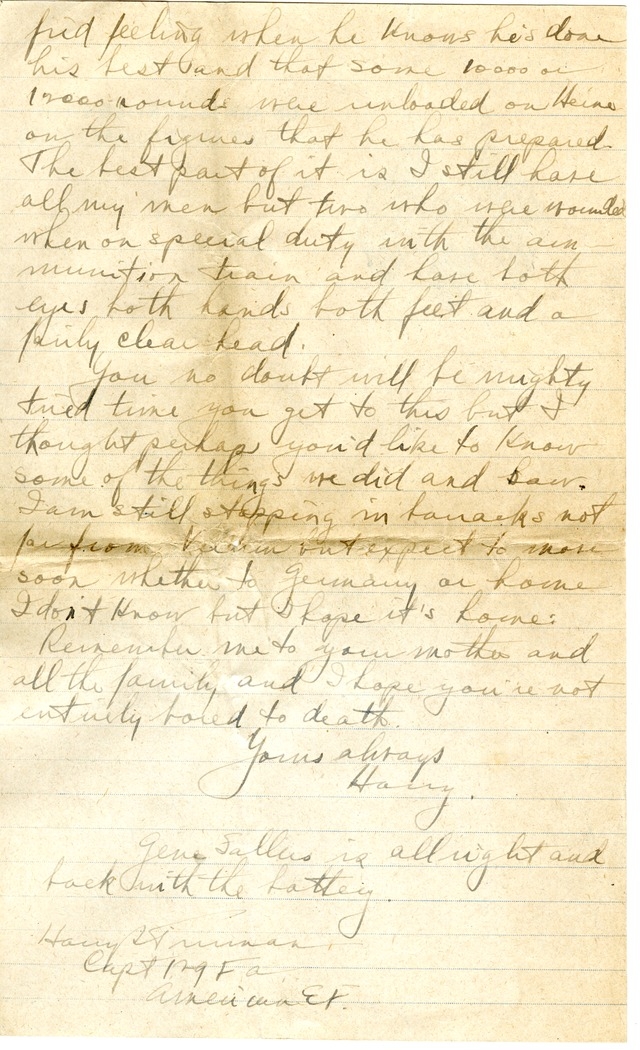 fied feeling when he knows he's done
his best and that some 10000 or
12000 rounds were unloaded on Heine
on the figures that he has prepared.
The best part of it is I still have
all my men but two who were wounded
when on special duty with the am-
munition train and have both
eyes both hands both feet and a
fairly clear head.
You no doubt will be mighty
tired time you get to this but I
thought perhaps you'd like to know
some of the things we did and saw.
I am still stopping in barracks not
far from Verdun but expect to move
soon whether to Germany or home
I don't know but I hope it's home.
Remember me to your mother and
all the family and I hope you're not
entirely bored to death.
Yours always
Harry.
Gene Salleis is all right and
back with the battery
Harry S Truman.
Capt 129 F a
American E F.